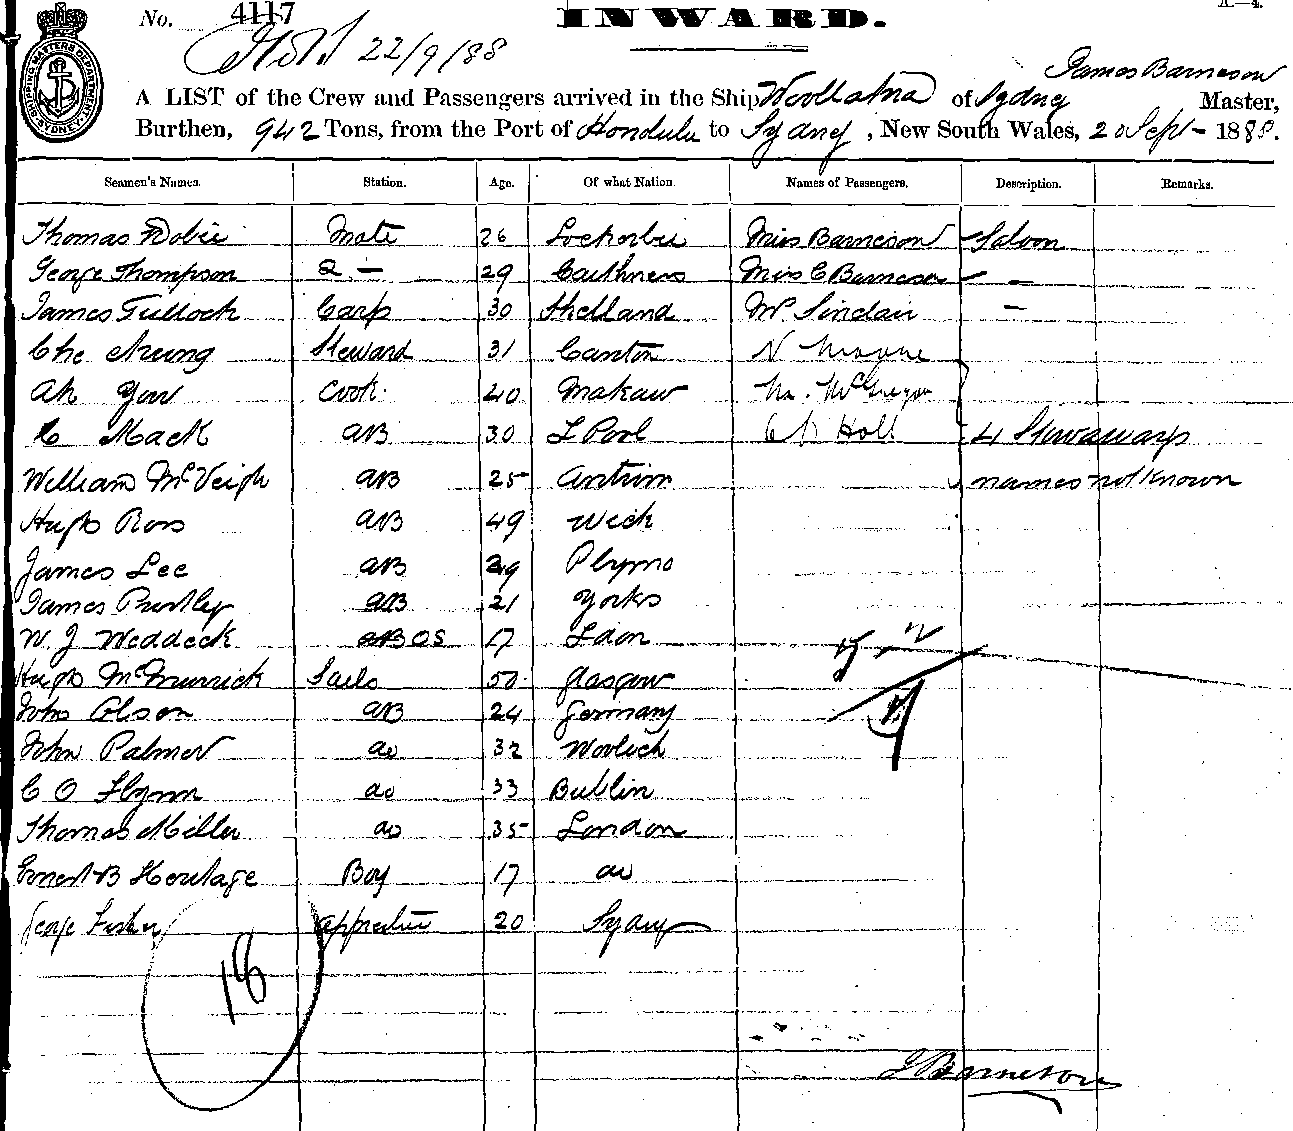 No. 4117 INWARD. A.—4.
22/9/88
SHIPPING MASTERS DEPARTMENT SYDNEY
James Barneson
A LIST of the Crew and Passengers arrived in the Ship Woollahra of Sydney Master,
Burthen, 942 Tons, from the Port of Honolulu to Sydney, New South Wales, 20 Sept 1888.
Seamen's Names. Station. Age. Of what Nation. Names of Passengers. Description. Remarks.
Thomas Dobie Mate 26 Lockerbie Miss Barneson Saloon
George Thompson 2 — 29 Caithness Miss C Barneson —
James Tullock Carp 30 Shetland Mr. Sinclair —
Che Steward 31 Canton N
Ah You Cook 40 Makaw McGregor
C Mack AB 30 L Pool Holt 4 Stowaways
William McVeigh AB 25 Antrim names not known
Hugh Ross AB 49 Wick
James Lee AB 29 Plymo
James Priestley AB 21 Yorks
W. J Weddeck AB OS 17 Ldon
Hugh McMurrick Sails 50 Glasgow
John Olson AB 24 Germany
John Palmer do 32 Woolich
C O Flynn do 33 Dublin
Thomas Miller do 35 London
Ernest B Heritage Boy 17 do
George Fisher apprentice 20 Sydney
18
J Barneson